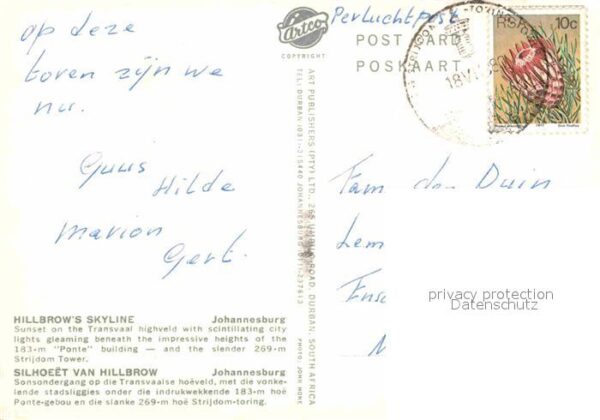 op deze
toren zijn we
nu.
Guus
Hilde
Marion
Gert.
HILLBROW'S SKYLINE Johannesburg
Sunset on the Transvaal highveld with scintillating city
lights gleaming beneath the impressive heights of the
183-m "Ponte" building — and the slender 269-m
Strijdom Tower.
SILHOEËT VAN HILLBROW Johannesburg
Sonsondergang op die Transvaalse hoëveld, met die vonke-
lende stadsliggies onder die indrukwekkende 183-m hoë
Ponte-gebou en die slanke 269-m hoë Strijdom-toring.
Artco
COPYRIGHT
ART PUBLISHERS (PTY) LTD., ROAD, DURBAN, SOUTH AFRICA
TEL: DURBAN JOHANNESBURG
PHOTO: JOHN HONE
Per Luchtpost
POST CARD
POSKAART
RSA 10c
Fam den Duin
Lem
Ensc
privacy protection
Datenschutz